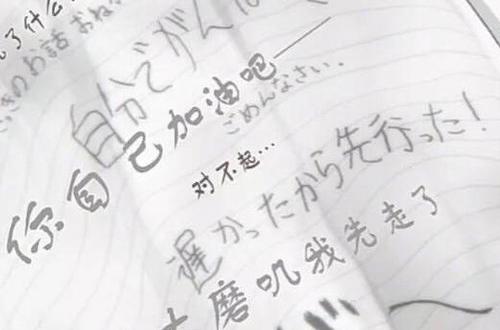 了什么
きのお話 おね
自分でがん
你自己加油吧——
ごめんなさい.
对不起...
遅かったから先行った!
磨叽我先走了